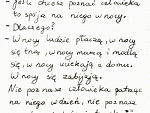 - Jeśli chcesz poznać człowieka
to spójrz na niego w nocy.
- Dlaczego?
- W nocy ludzie płaczą, w nocy
się tną, w nocy marzą i modlą
się, w nocy uciekają z domu.
W nocy się zabijają.
Nie poznasz człowieka patrząc
na niego w dzień, nie poznasz